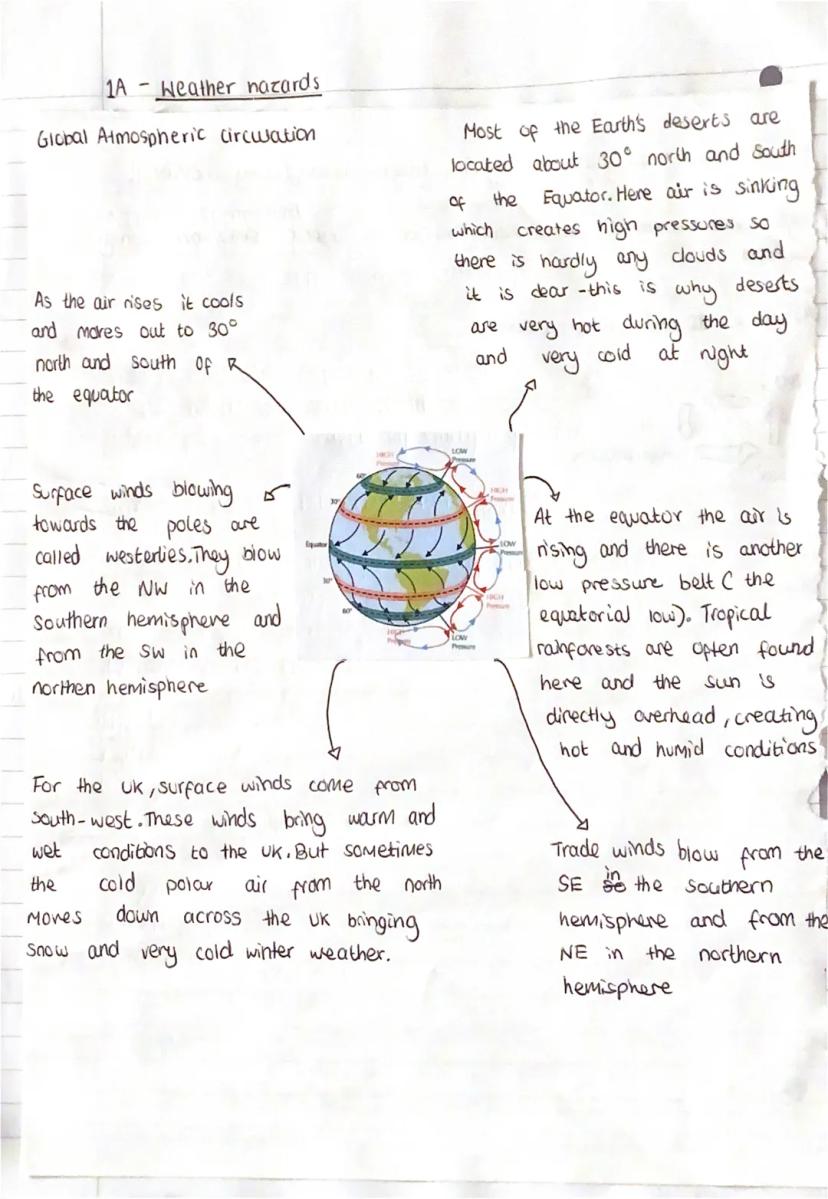 1A - Weather hazards
Global Atmospheric circulation
Most of the Earth's deserts are
located about 30° north and south
of the Equator. Here air is sinking
which creates high pressures so
there is hardly any clouds and
it is clear - this is why deserts
are very hot during the day
and very cold at night
As the air rises it cools
and moves out to 30°
north and south of
the equator
Surface winds blowing
towards the poles are
called westerlies. They blow
from the NW in the
Southern hemisphere and
from the SW in the
northen hemisphere
HIGH
Pressure
LOW
Pressure
60°
HIGH
Pressure
30°
Equator
LOW
Pressure
30°
HIGH
Pressure
60°
HIGH
Pressure
LOW
Pressure
At the equator the air is
rising and there is another
low pressure belt ( the
equatorial low). Tropical
rainforests are often found
here and the sun is
directly overhead, creating
hot and humid conditions
For the UK, surface winds come from
south-west. These winds bring warm and
wet conditions to the UK. But sometimes
the cold polar air from the north
moves down across the UK bringing
snow and very cold winter weather.
Trade winds blow from the
SE in the southern
hemisphere and from the
NE in the northern
hemisphere